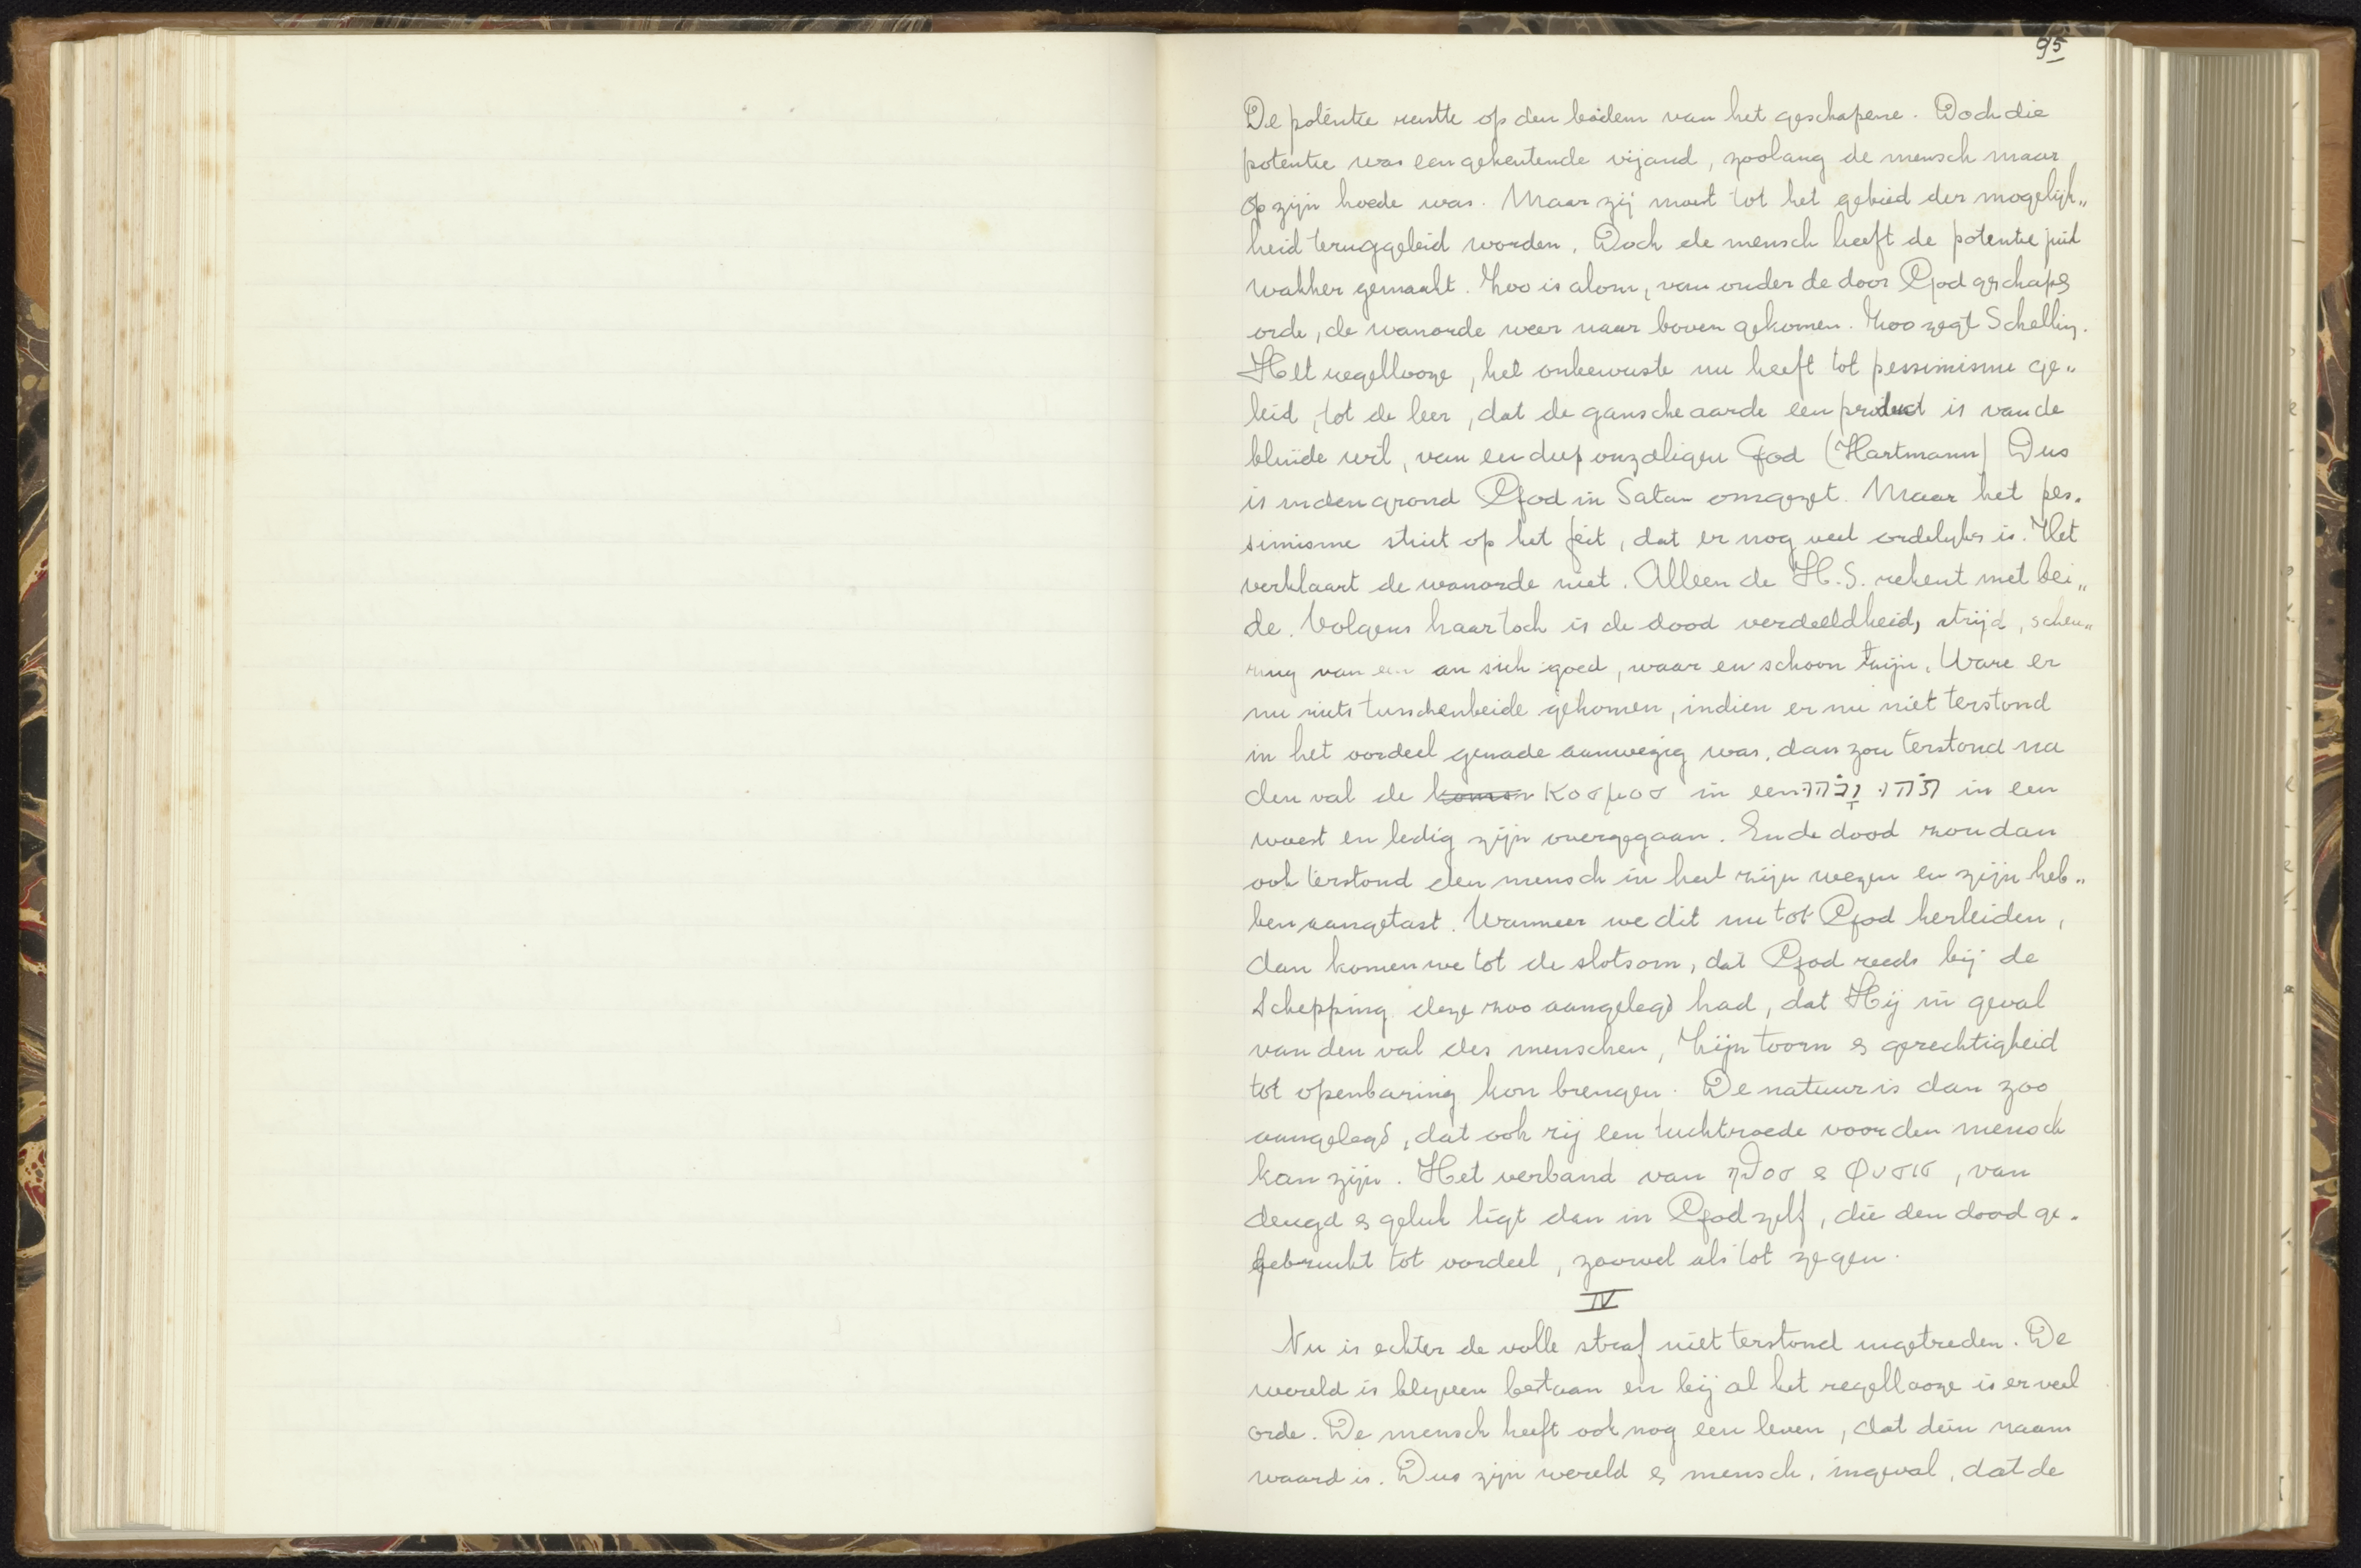 95
De potentie rustte op den bodem van het geschapene. Doch die
potentie was een geketende vijand, zoolang de mensch maar
op zijn hoede was. Maar zij moest tot het gebied der mogelijk„
heid teruggeleid worden. Doch de mensch heeft de potentie juist
wakker gemaakt. Zoo is alom, van onder de door God geschapẽ
orde, de wanorde weer naar boven gekomen. Zoo zegt Schelling.
Het regellooze, het onbewuste nu heeft tot pessimisme ge„
leid, tot de leer, dat de gansche aarde een product is van de
blinde wil, van een diep onzaligen God (Hartmann) Dus
is in den grond God in Satan omgezet. Maar het pes„
simisme stuit op het feit, dat er nog veel ordelijks is. Het
verklaart de wanorde niet. Alleen de H.S. rekent met bei„
de. Volgens haar toch is de dood verdeeldheid, strijd, scheu„
ring van een an sich goed, waar en schoon zijn. Ware er
nu niets tusschenbeide gekomen, indien er nu niet terstond
in het oordeel genade aanwezig was, dan zou terstond na
den val de κοσμοσ in een תֹהוּ וָבֹהוּ in een
woest en ledig zijn overgegaan. En de dood zou dan
ook terstond den mensch in heel zijn wezen en zijn heb„
ben aangetast. Wanneer we dit nu tot God herleiden,
dan komen we tot de slotsom, dat God reeds bij de
Schepping deze zoo aangelegd had, dat Hij in geval
van den val des menschen, Zijn toorn & gerechtigheid
tot openbaring kon brengen. De natuur is dan zoo
aangelegd, dat ook zij een tuchtroede voor den mensch
kan zijn. Het verband van ηθοσ & φυσισ, van
deugd & geluk ligt dan in God zelf, die den dood ge„
gebruikt tot oordeel, zoowel als tot zegen.
IV
Nu is echter de volle straf niet terstond ingetreden. De
wereld is blijven bestaan en bij al het regellooze is er veel
orde. De mensch heeft ook nog een leven, dat dien naam
waard is. Dus zijn wereld & mensch, ingeval, dat de